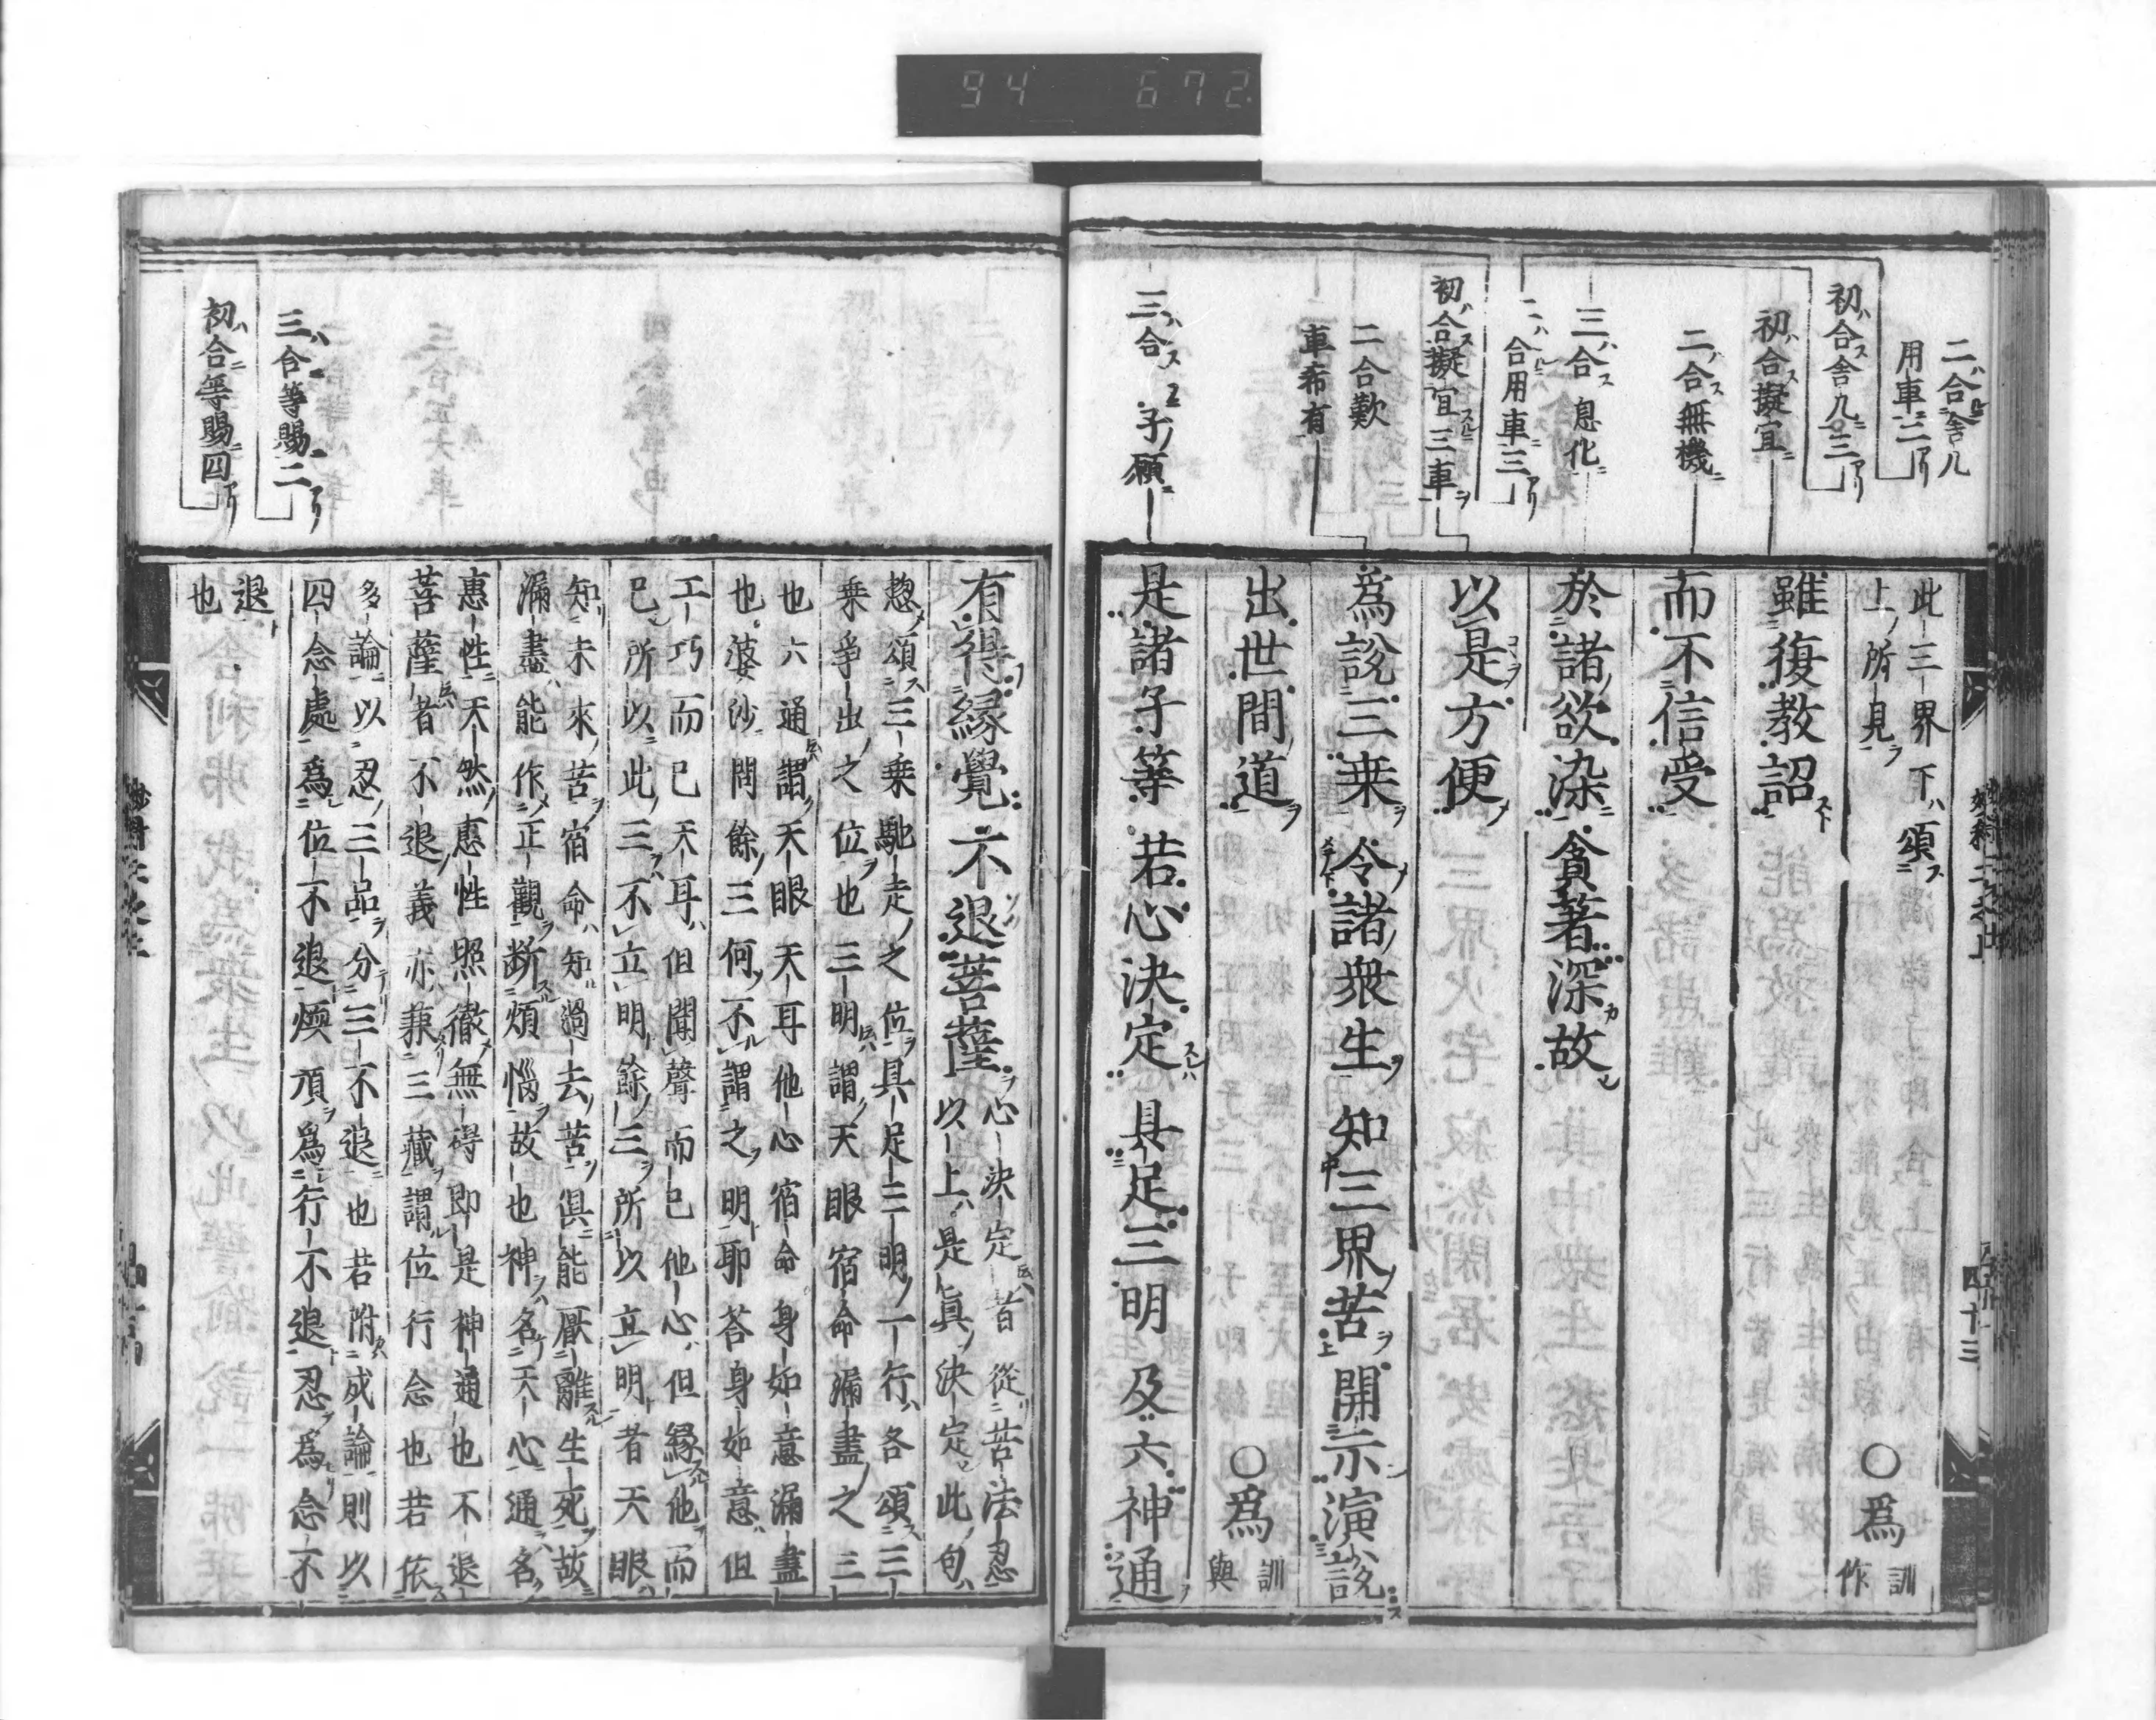 94 672
二合舍几
用車三
初合舍几三
初合擬宜
二合無機
三合息化
二合用車三
初合擬宜三車
二合歎
車希有
三合子願
此三界下頌
上所見
○為
訓
作
雖復教詔
而不信受
於諸欲染 貪著深故
以是方便
為說三乗 令諸衆生 知三界苦 開示演說
出世間道
○為
訓
與
是諸子等 若心決定 具足三明 及六神通
四十三
三合等賜二
初合等賜四
有得緣覺 不退菩薩
心決定者從苦法忍
以上是真決定此句
惣頌三乗馳走之位具足三明一行各頌三
乗爭出之位也三明謂天眼宿命漏盡之三
也六通謂天眼天耳他心宿命身如意漏盡
也婆沙問餘三何不謂之明耶荅身如意但
工巧而已天耳但聞聲而已他心但緣他而
已所以此三不立明餘三所以立明者天眼
知未來苦宿命知過去苦俱能厭離生死故
漏盡能作正觀断煩惱故也神名天心通名
惠性天然惠性照徹無得即是神通也不退
菩薩者不退義亦兼三藏謂位行念也若依
多論以忍三品分三不退也若附成論則以
四念處爲位不退煗頂爲行不退忍爲念不
退
也